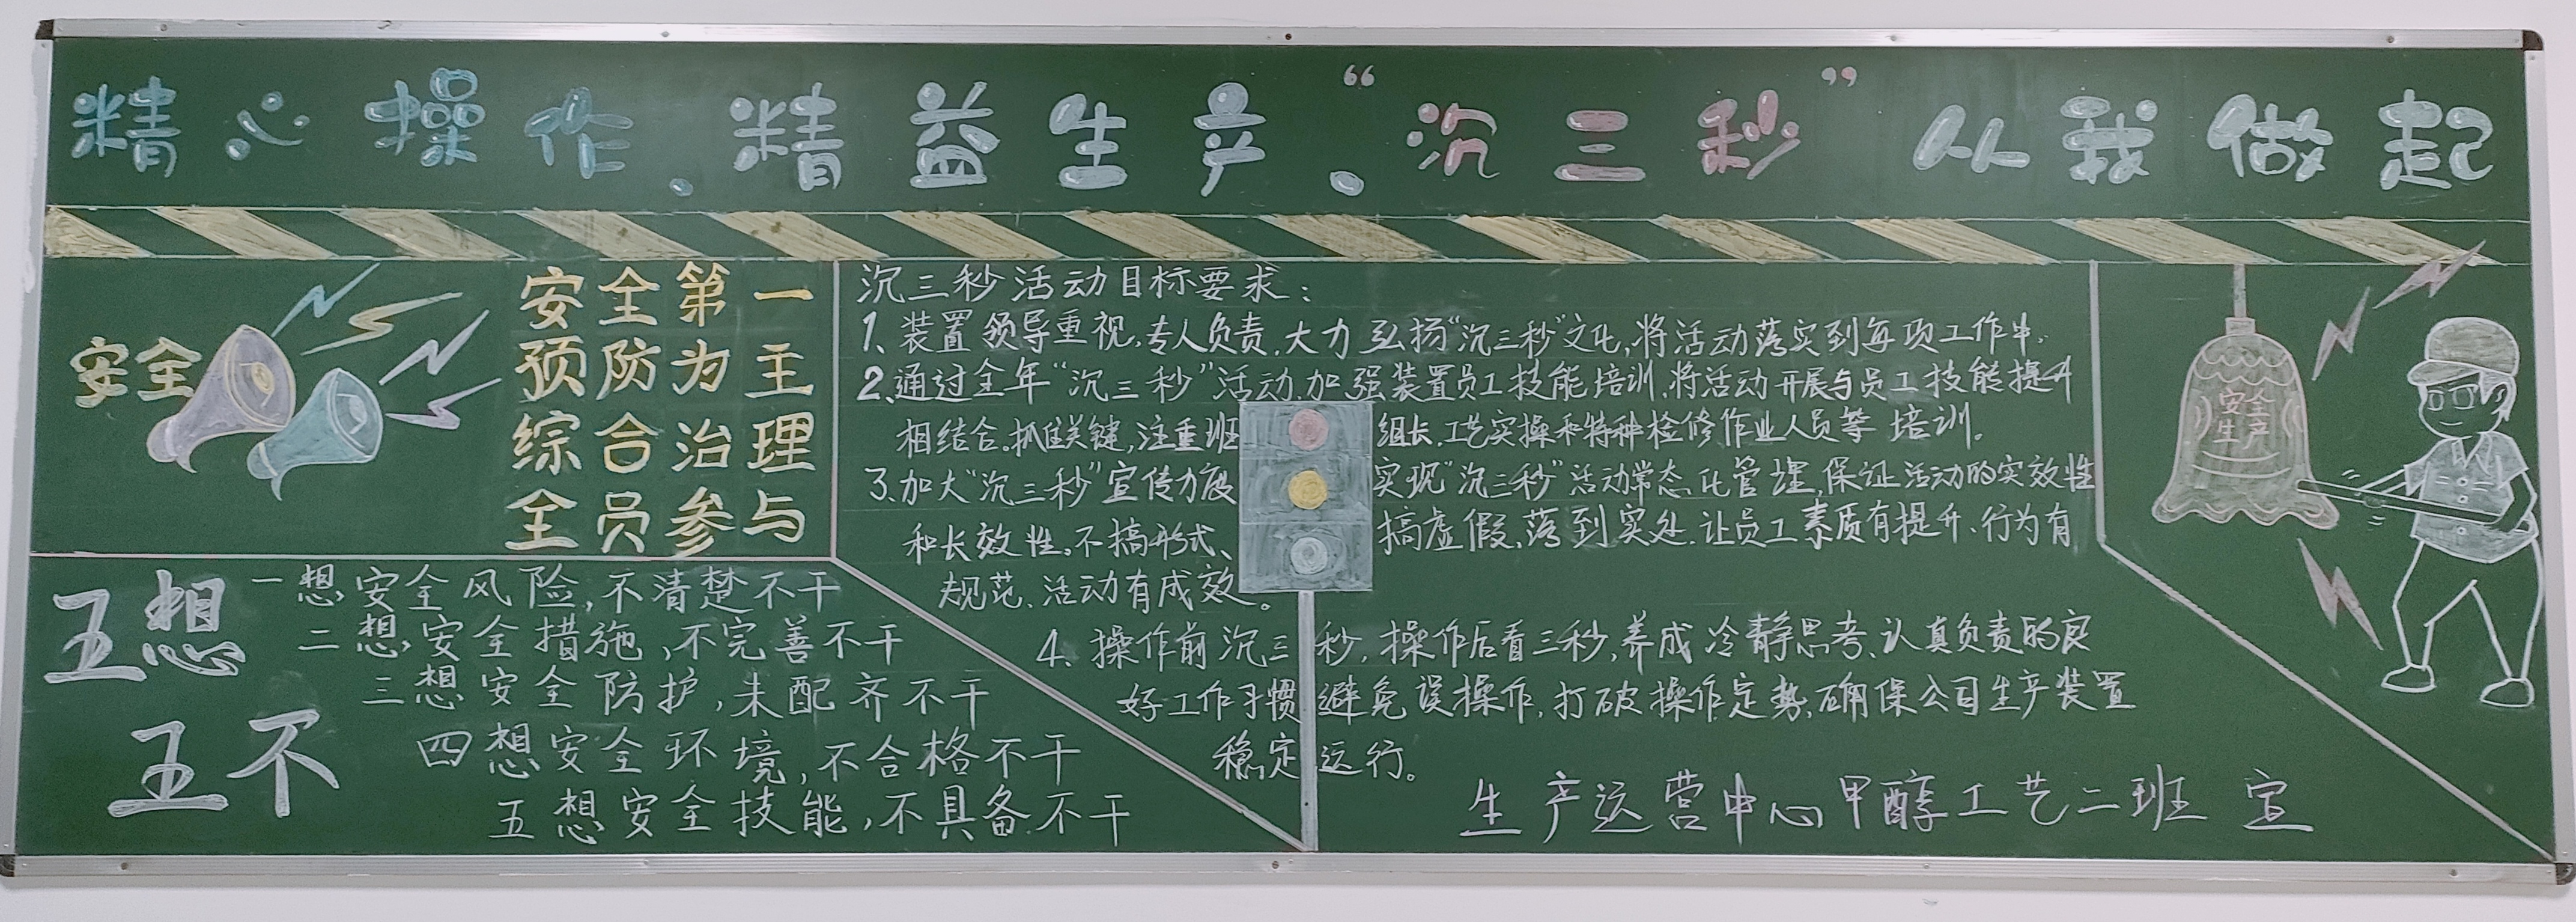 精心操作、精益生产、“沉三秒”从我做起
安全
安全第一
预防为主
综合治理
全员参与
沉三秒活动目标要求：
1、装置领导重视,专人负责,大力弘扬“沉三秒”文化,将活动落实到每项工作中.
2、通过全年“沉三秒”活动,加强装置员工技能培训,将活动开展与员工技能提升
相结合。抓住关键,注重班组长,工艺实操和特种检修作业人员等培训。
3、加大“沉三秒”宣传力度实现“沉三秒”活动常态化管理,保证活动的实效性
和长效性。不搞形式、搞虚假,落到实处.让员工素质有提升、行为有
规范、活动有成效。
4、操作前沉三秒,操作后看三秒,养成冷静思考、认真负责的良
好工作习惯避免误操作,打破操作定势,确保公司生产装置
稳定运行。
生产运营中心甲醇工艺二班 宣
五想
五不
一想安全风险,不清楚不干
二想安全措施,不完善不干
三想安全防护,未配齐不干
四想安全环境,不合格不干
五想安全技能,不具备不干
安全
生产